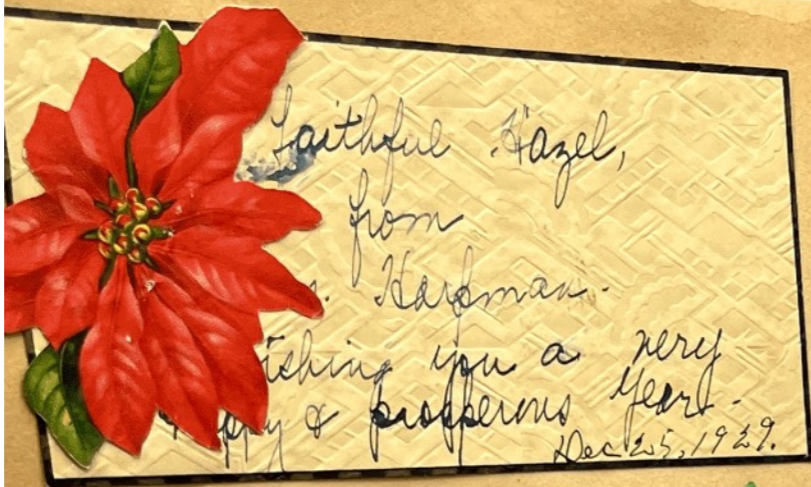 Faithful Hazel,
from
Hoffman.
ishing you a very
ppy & prosperous year.
Dec 25, 1929.